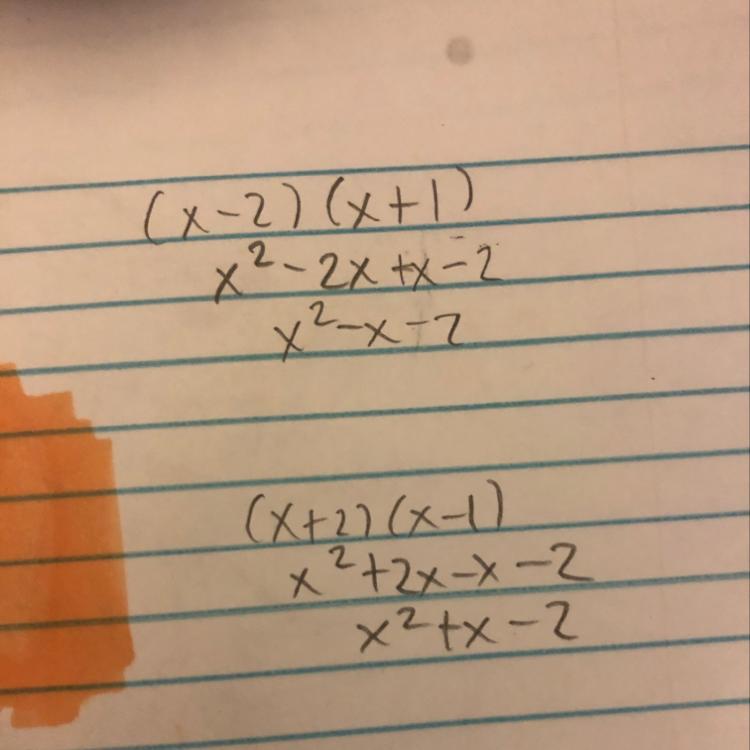 (x-2)(x+1)
x²-2x+x-2
x²-x-2
(x+2)(x-1)
x²+2x-x-2
x²+x-2